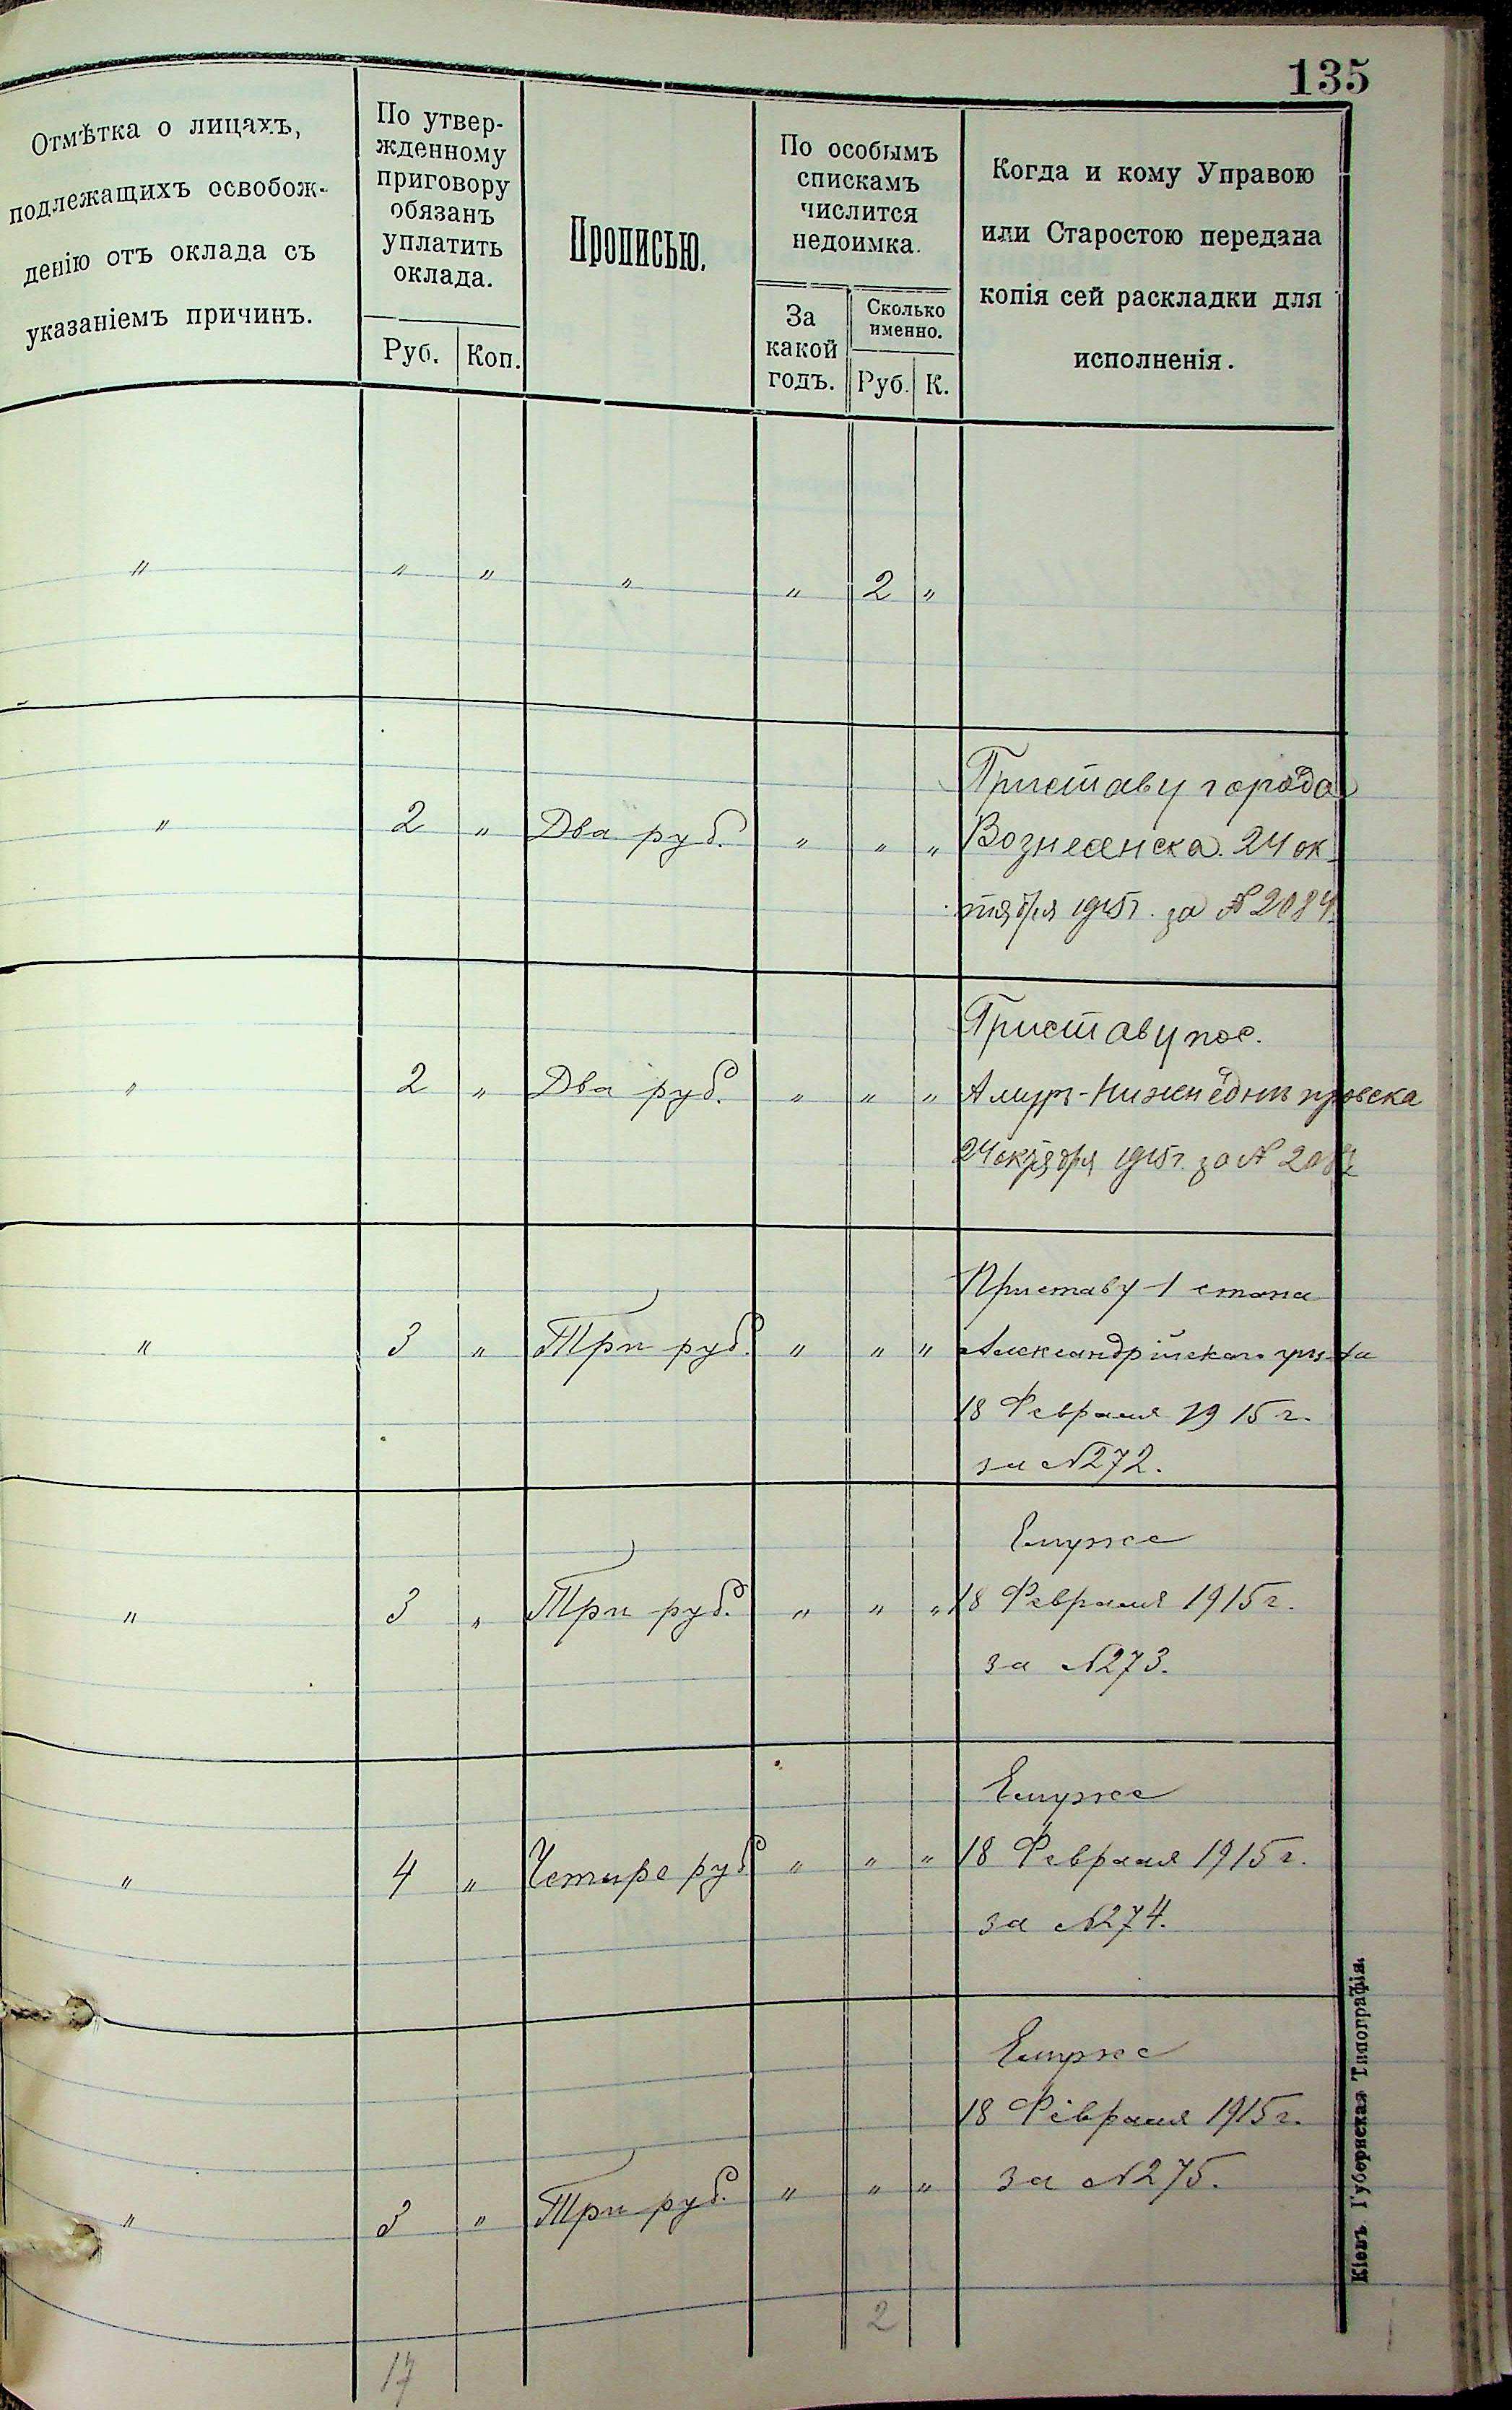 135
Отмѣтка о лицахъ,
подлежащихъ освобож-
денію отъ оклада съ
указаніемъ причинъ.
По утвер-
жденному
приговору
обязанъ
уплатить
оклада.
Руб. Коп.
Прописью.
По особымъ
спискамъ
числится
недоимка.
За
какой
годъ.
Сколько
именно.
Руб. К.
Когда и кому Управою
или Старостою передана
копія сей раскладки для
исполненія.
" " " " " 2 "
" 2 " Два руб. " " "
Приставу города
Вознесенска. 24 ок-
тября 1915 г. за № 2084.
" 2 " Два руб. " " "
Приставу пос.
Амуръ-Нижнеднѣпровска
24 октября 1915 г. за №
" 3 " Три руб. " " "
Приставу 1 стана
Александрійскаго уѣзда
18 Февраля 1915 г.
за № 272.
" 3 " Три руб. " " "
Емуже
18 Февраля 1915 г.
за № 273.
" 4 " Четыре руб " " "
Емуже
18 Февраля 1915 г.
за № 274.
" 3 " Три руб. " " "
Емуже
18 Февраля 1915 г.
за № 275.
17 2
Кіевъ. Губернская Типографія.